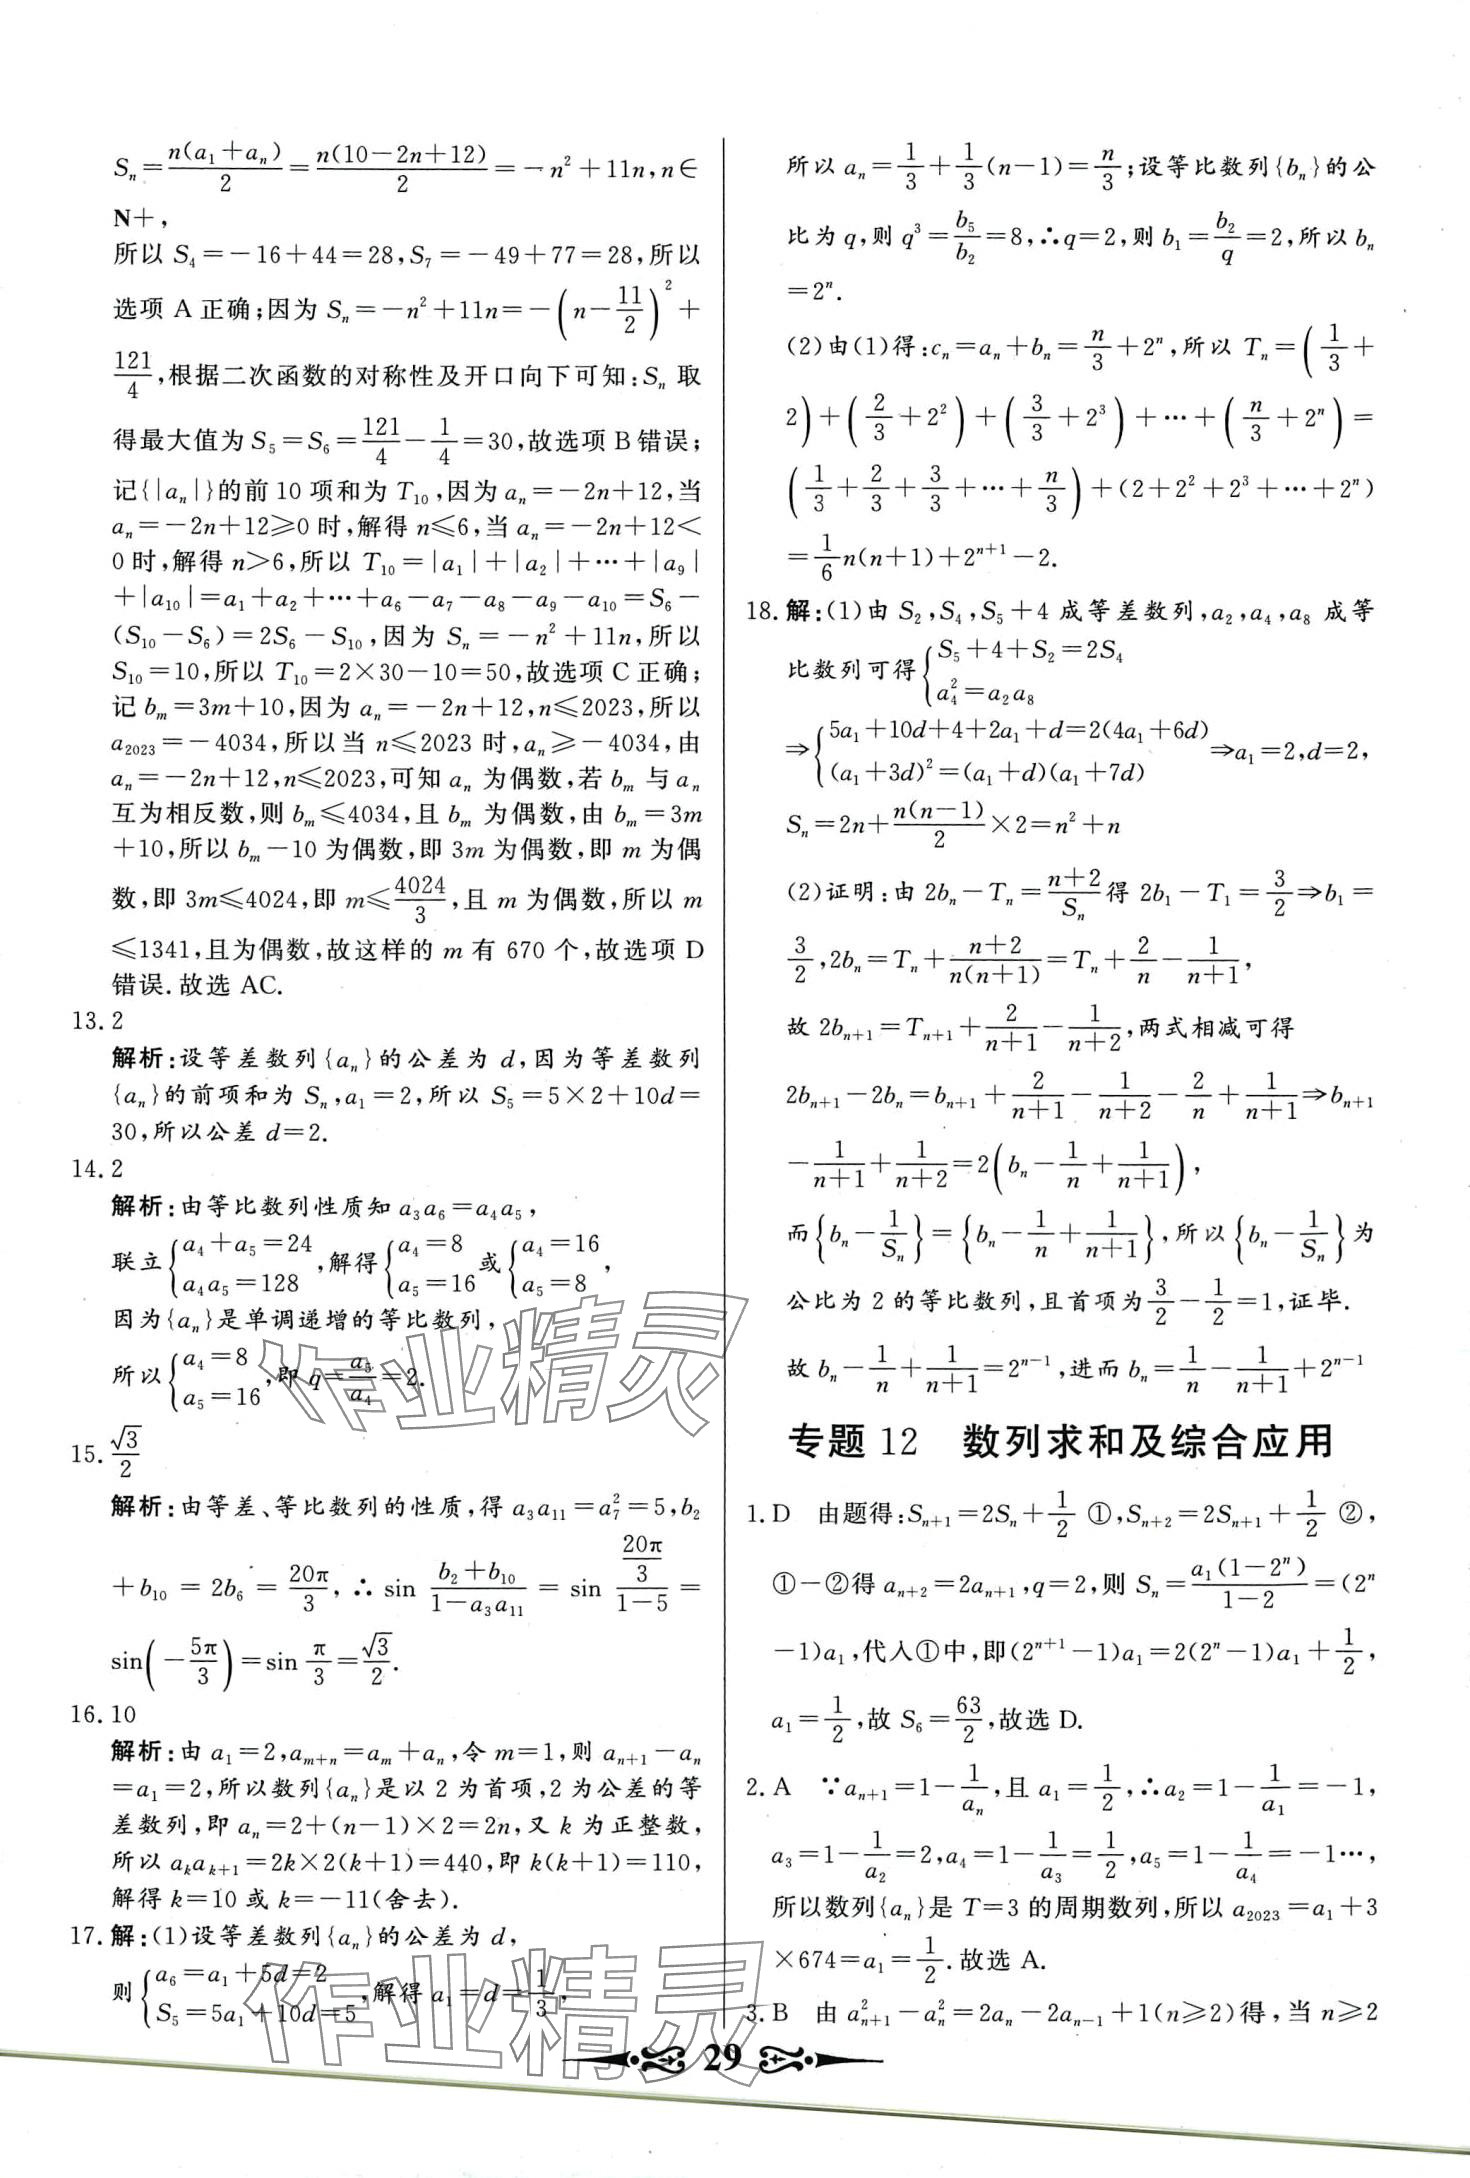 Sₙ=n(a₁+aₙ)/2=n(10−2n+12)/2=−n²+11n,n∈
N+,
所以 S₄=−16+44=28,S₇=−49+77=28,所以
选项 A 正确;因为 Sₙ=−n²+11n=−(n−11/2)²+
121/4,根据二次函数的对称性及开口向下可知:Sₙ 取
得最大值为 S₅=S₆=121/4−1/4=30,故选项 B 错误;
记{|aₙ|}的前 10 项和为 T₁₀,因为 aₙ=−2n+12,当
aₙ=−2n+12≥0 时,解得 n≤6,当 aₙ=−2n+12<
0 时,解得 n>6,所以 T₁₀=|a₁|+|a₂|+⋯+|a₉|
+|a₁₀|=a₁+a₂+⋯+a₆−a₇−a₈−a₉−a₁₀=S₆−
(S₁₀−S₆)=2S₆−S₁₀,因为 Sₙ=−n²+11n,所以
S₁₀=10,所以 T₁₀=2×30−10=50,故选项 C 正确;
记 bₘ=3m+10,因为 aₙ=−2n+12,n≤2023,所以
a₂₀₂₃=−4034,所以当 n≤2023 时,aₙ≥−4034,由
aₙ=−2n+12,n≤2023,可知 aₙ 为偶数,若 bₘ 与 aₙ
互为相反数,则 bₘ≤4034,且 bₘ 为偶数,由 bₘ=3m
+10,所以 bₘ−10 为偶数,即 3m 为偶数,即 m 为偶
数,即 3m≤4024,即 m≤4024/3,且 m 为偶数,所以 m
≤1341,且为偶数,故这样的 m 有 670 个,故选项 D
错误.故选 AC.
13.2
解析:设等差数列{aₙ}的公差为 d,因为等差数列
{aₙ}的前项和为 Sₙ,a₁=2,所以 S₅=5×2+10d=
30,所以公差 d=2.
14.2
解析:由等比数列性质知 a₃a₆=a₄a₅,
联立{a₄+a₅=24 a₄a₅=128,解得{a₄=8 a₅=16或{a₄=16 a₅=8,
因为{aₙ}是单调递增的等比数列,
所以{a₄=8 a₅=16,即 q=a₅/a₄=2.
15.√3/2
解析:由等差、等比数列的性质,得 a₃a₁₁=a₇²=5,b₂
+b₁₀=2b₆=20π/3,∴sin (b₂+b₁₀)/(1−a₃a₁₁)=sin (20π/3)/(1−5)=
sin(−5π/3)=sin π/3=√3/2.
16.10
解析:由 a₁=2,aₘ₊ₙ=aₘ+aₙ,令 m=1,则 aₙ₊₁−aₙ
=a₁=2,所以数列{aₙ}是以 2 为首项,2 为公差的等
差数列,即 aₙ=2+(n−1)×2=2n,又 k 为正整数,
所以 aₖaₖ₊₁=2k×2(k+1)=440,即 k(k+1)=110,
解得 k=10 或 k=−11(舍去).
17.解:(1)设等差数列{aₙ}的公差为 d,
则{a₆=a₁+5d=2 S₅=5a₁+10d=5,解得 a₁=d=1/3,
所以 aₙ=1/3+1/3(n−1)=n/3;设等比数列{bₙ}的公
比为 q,则 q³=b₅/b₂=8,∴q=2,则 b₁=b₂/q=2,所以 bₙ
=2ⁿ.
(2)由(1)得:cₙ=aₙ+bₙ=n/3+2ⁿ,所以 Tₙ=(1/3+
2)+(2/3+2²)+(3/3+2³)+⋯+(n/3+2ⁿ)=
(1/3+2/3+3/3+⋯+n/3)+(2+2²+2³+⋯+2ⁿ)
=1/6n(n+1)+2ⁿ⁺¹−2.
18.解:(1)由 S₂,S₄,S₅+4 成等差数列,a₂,a₄,a₈ 成等
比数列可得{S₅+4+S₂=2S₄ a₄²=a₂a₈
⇒{5a₁+10d+4+2a₁+d=2(4a₁+6d) (a₁+3d)²=(a₁+d)(a₁+7d)⇒a₁=2,d=2,
Sₙ=2n+n(n−1)/2×2=n²+n
(2)证明:由 2bₙ−Tₙ=(n+2)/Sₙ得 2b₁−T₁=3/2⇒b₁=
3/2,2bₙ=Tₙ+(n+2)/(n(n+1))=Tₙ+2/n−1/(n+1),
故 2bₙ₊₁=Tₙ₊₁+2/(n+1)−1/(n+2),两式相减可得
2bₙ₊₁−2bₙ=bₙ₊₁+2/(n+1)−1/(n+2)−2/n+1/(n+1)⇒bₙ₊₁
−1/(n+1)+1/(n+2)=2(bₙ−1/n+1/(n+1)),
而{bₙ−1/Sₙ}={bₙ−1/n+1/(n+1)},所以{bₙ−1/Sₙ}为
公比为 2 的等比数列,且首项为3/2−1/2=1,证毕.
故 bₙ−1/n+1/(n+1)=2ⁿ⁻¹,进而 bₙ=1/n−1/(n+1)+2ⁿ⁻¹
专题 12 数列求和及综合应用
1.D 由题得:Sₙ₊₁=2Sₙ+1/2 ①,Sₙ₊₂=2Sₙ₊₁+1/2 ②,
①−②得 aₙ₊₂=2aₙ₊₁,q=2,则 Sₙ=a₁(1−2ⁿ)/(1−2)=(2ⁿ
−1)a₁,代入①中,即(2ⁿ⁺¹−1)a₁=2(2ⁿ−1)a₁+1/2,
a₁=1/2,故 S₆=63/2,故选 D.
2.A ∵aₙ₊₁=1−1/aₙ,且 a₁=1/2,∴a₂=1−1/a₁=−1,
a₃=1−1/a₂=2,a₄=1−1/a₃=1/2,a₅=1−1/a₄=−1⋯,
所以数列{aₙ}是 T=3 的周期数列,所以 a₂₀₂₃=a₁+3
×674=a₁=1/2.故选 A.
3.B 由 aₙ₊₁²−aₙ²=2aₙ−2aₙ₋₁+1(n≥2)得,当 n≥2
29
作业精灵
作业精灵